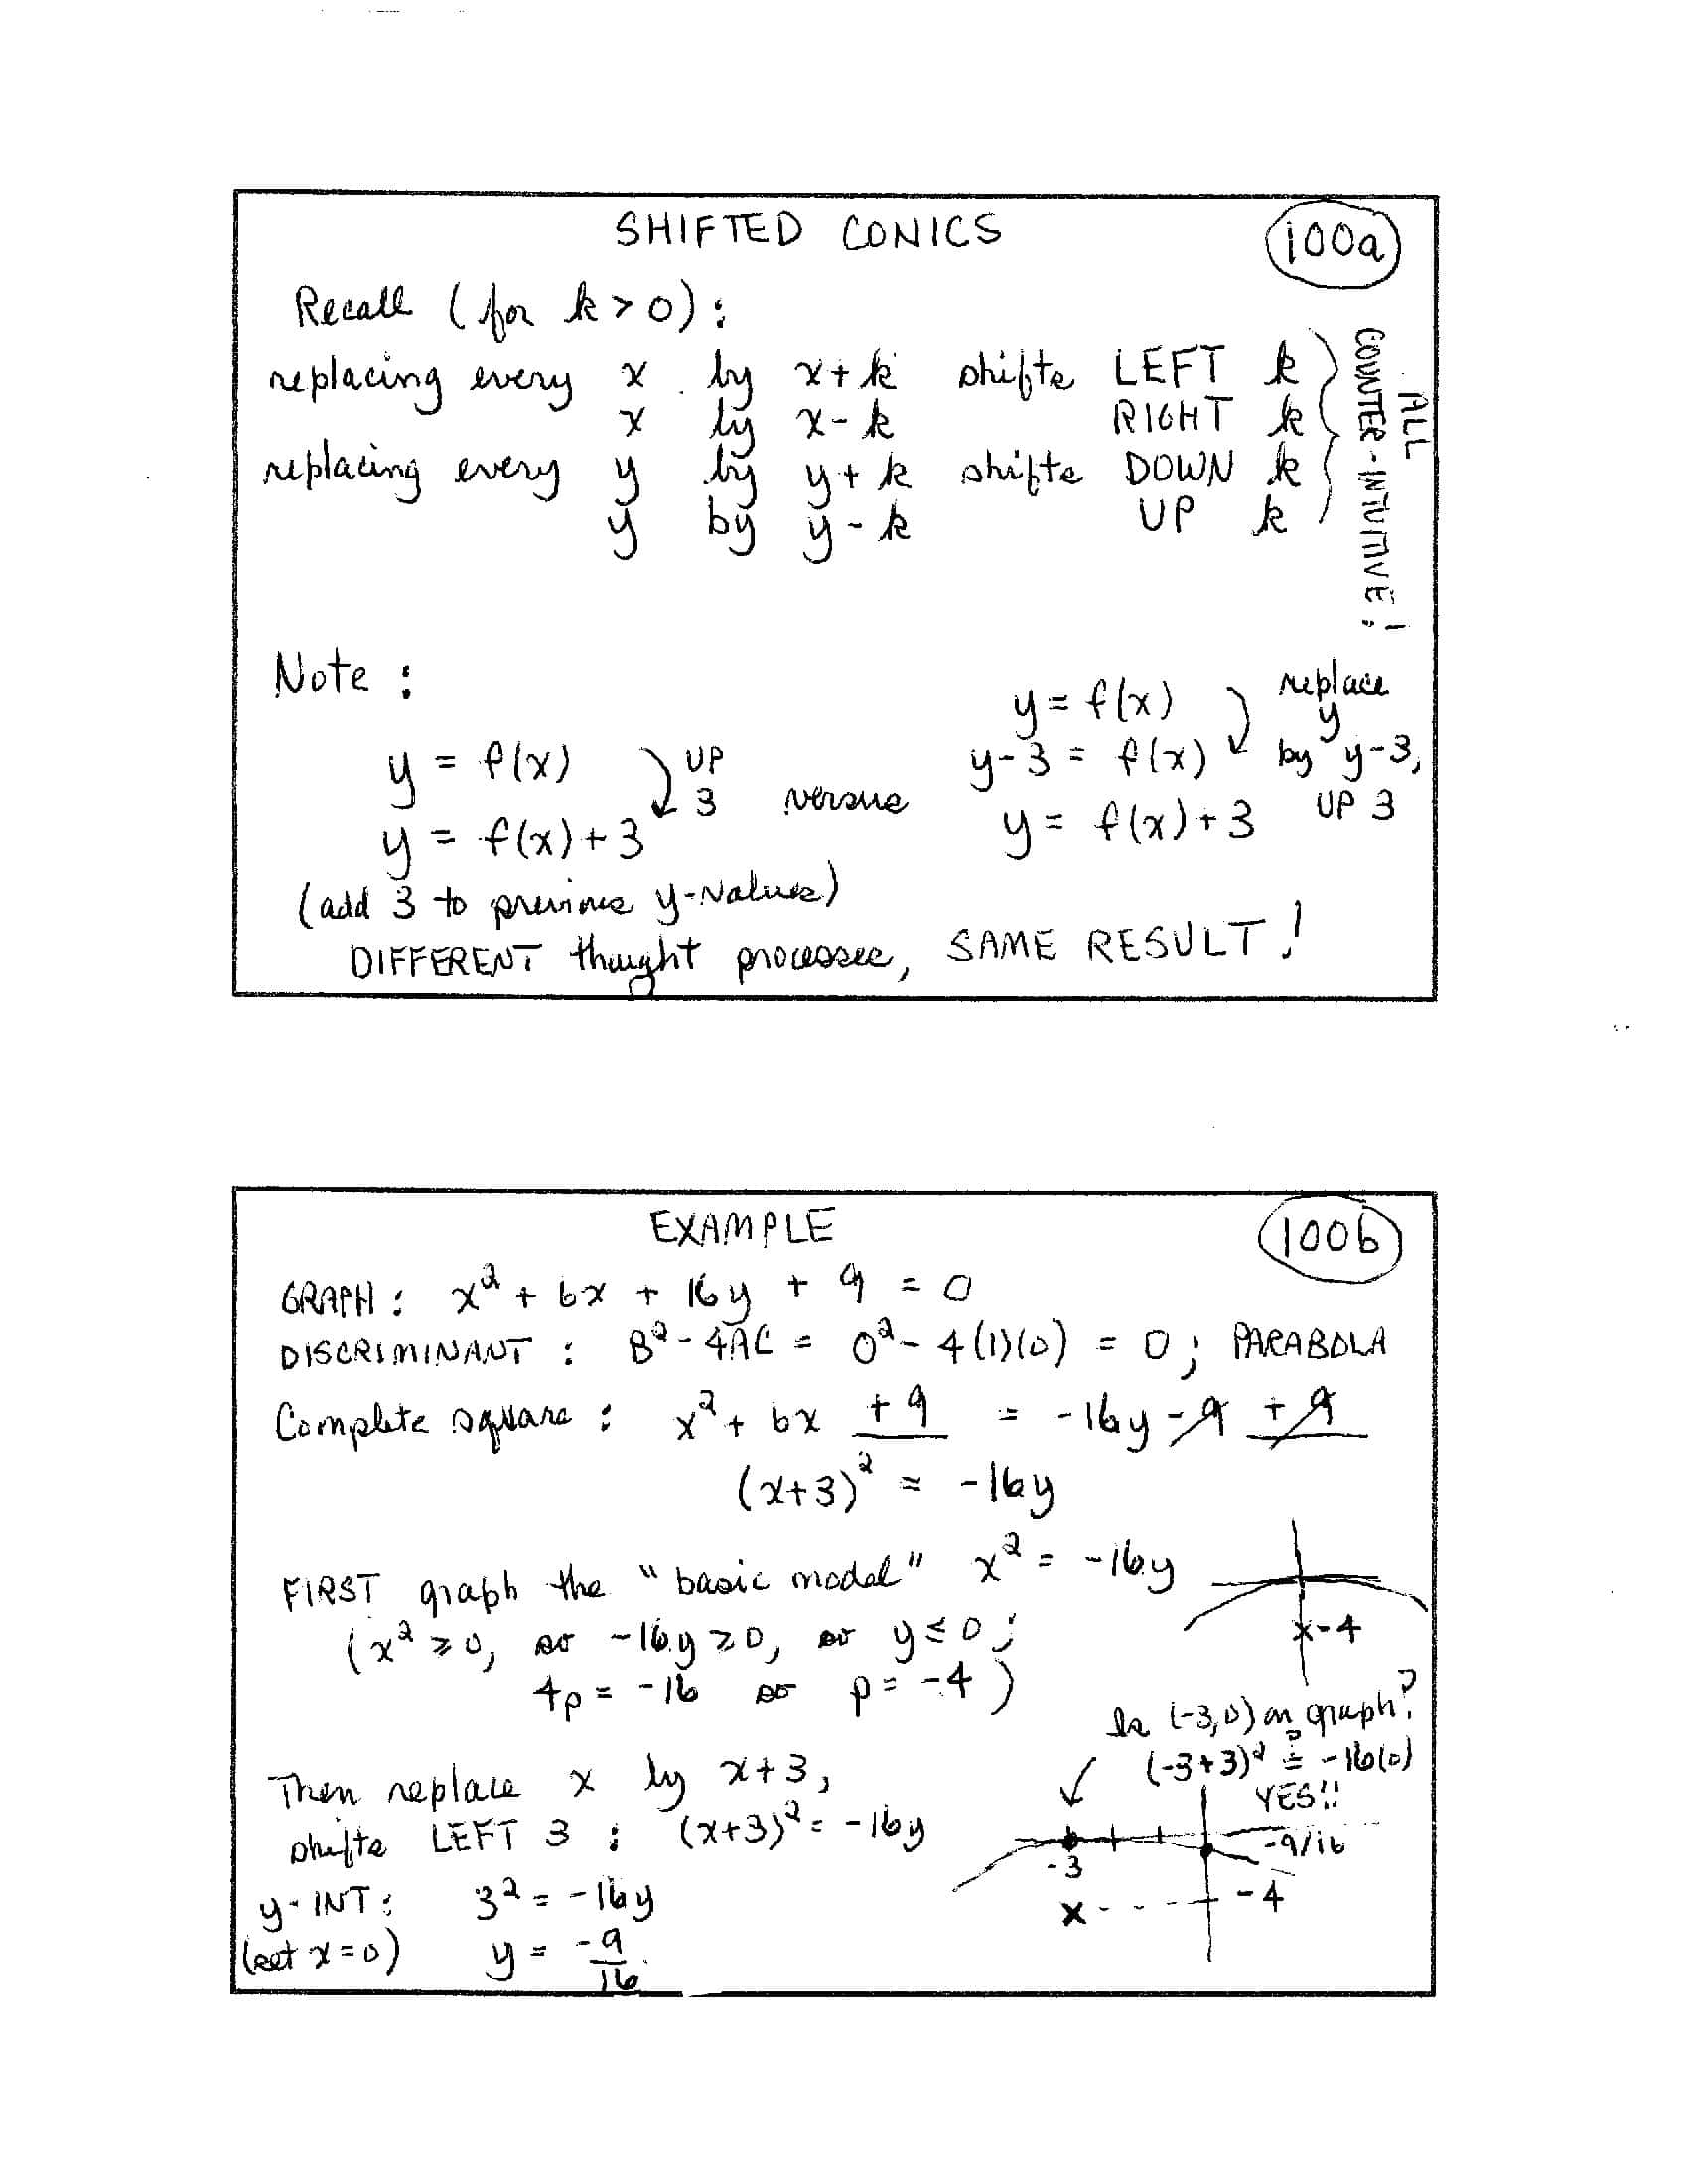 SHIFTED CONICS
100a
Recall (for k > 0):
replacing every x by x+k shifts LEFT k
x by x-k RIGHT k
replacing every y by y+k shifts DOWN k
y by y-k UP k
ALL
COUNTER-INTUITIVE!
Note:
y = f(x)
UP
3
y = f(x)+3
(add 3 to previous y-values)
versus
y = f(x)
y-3 = f(x)
y = f(x)+3
replace
y
by y-3,
UP 3
DIFFERENT thought processes, SAME RESULT!
EXAMPLE
100b
GRAPH: x² + 6x + 16y + 9 = 0
DISCRIMINANT: B² - 4AC = 0² - 4(1)(0) = 0; PARABOLA
Complete square: x² + 6x + 9 = -16y - 9 + 9
(x+3)² = -16y
FIRST graph the "basic model" x² = -16y
(x² ≥ 0, so -16y ≥ 0, so y ≤ 0;
4p = -16 so p = -4)
x -4
Is (-3,0) on graph?
(-3+3)² ≟ -16(0)
YES!!
Then replace x by x+3,
shifts LEFT 3: (x+3)² = -16y
-9/16
-3
x -4
y-INT: 3² = -16y
(set x=0) y = -9/16